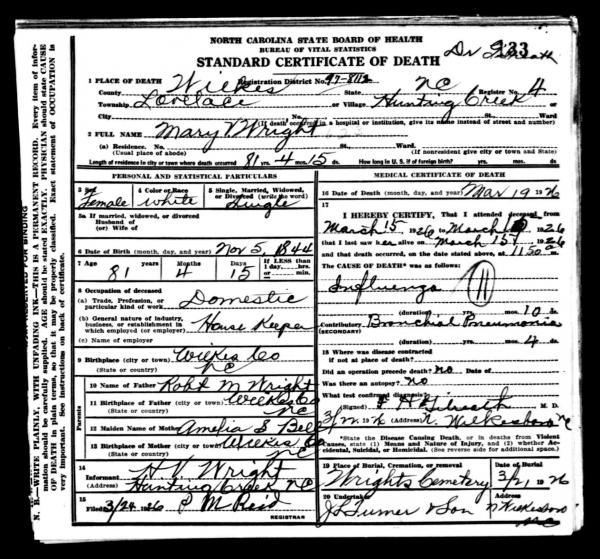 NORTH CAROLINA STATE BOARD OF HEALTH
BUREAU OF VITAL STATISTICS
STANDARD CERTIFICATE OF DEATH
Dr 233
1 PLACE OF DEATH
County Wilkes Registration District No. 97-8112 NC Register No. 4
Township Lovelace or Village Hunting Creek or
City No. St. Ward
(If death occurred in a hospital or institution, give its name instead of street and number)
2 FULL NAME Mary V Wright
(a) Residence. No. St. Ward.
(Usual place of abode) (If nonresident give city or town and State)
Length of residence in city or town where death occurred 81 yrs. 4 mos. 15 ds. How long in U. S. if of foreign birth? yrs. mos. ds.
PERSONAL AND STATISTICAL PARTICULARS
3 Sex Female
4 Color or Race White
5 Single, Married, Widowed, or Divorced Single
5a If married, widowed, or divorced
Husband of
(or) Wife of
6 Date of Birth (month, day, and year) Nov 5, 1844
7 Age 81 Months 4 Days 15 If LESS than
1 day, hrs.
or min.
8 Occupation of deceased
(a) Trade, Profession, or
particular kind of work Domestic
(b) General nature of industry,
business, or establishment in
which employed (or employer) House Keeper
(c) Name of employer
9 Birthplace (city or town) Wilkes Co
(State or country) NC
Parents
10 Name of Father Robt M Wright
11 Birthplace of Father (city or town) Wilkes Co
(State or country) NC
12 Maiden Name of Mother Amelia S Bell
13 Birthplace of Mother (city or town) Wilkes Co
(State or country) NC
14
Informant H. V. Wright
(Address) Hunting Creek NC
15
Filed 3/24 1926 P M Reid
REGISTRAR
MEDICAL CERTIFICATE OF DEATH
16 Date of Death (month, day, and year) Mar 19 1926
17
I HEREBY CERTIFY, That I attended deceased from
March 15, 1926 to March 1926
that I last saw her alive on March 15, 1926
and that death occurred, on the date stated above, at 11 50 m.
The CAUSE OF DEATH* was as follows:
Influenza 11
(duration) yrs. mos. 10 ds.
Contributory Bronchial Pneumonia
(SECONDARY)
(duration) yrs. mos. 4 ds.
18 Where was disease contracted
if not at place of death?
Did an operation precede death? no Date of
Was there an autopsy? no
What test confirmed diagnosis?
(Signed) F H Gilreath M. D.
(Address) N. Wilkesboro NC
*State the Disease Causing Death, or in deaths from Violent
Causes, state (1) Means and Nature of Injury, and (2) whether Ac-
cidental, Suicidal, or Homicidal. (See reverse side for additional space.)
19 Place of Burial, Cremation, or removal Date of Burial
Wrights Cemetery 3/21 1926
20 Undertaker (Address)
J L Turner & Son N Wilkesboro
NC
N. B.—WRITE PLAINLY, WITH UNFADING INK—THIS IS A PERMANENT RECORD. Every item of infor-
mation should be carefully supplied. AGE should be stated EXACTLY. PHYSICIAN should state CAUSE
OF DEATH in plain terms, so that it may be properly classified. Exact statement of OCCUPATION is
very important. See instructions on back of certificate.